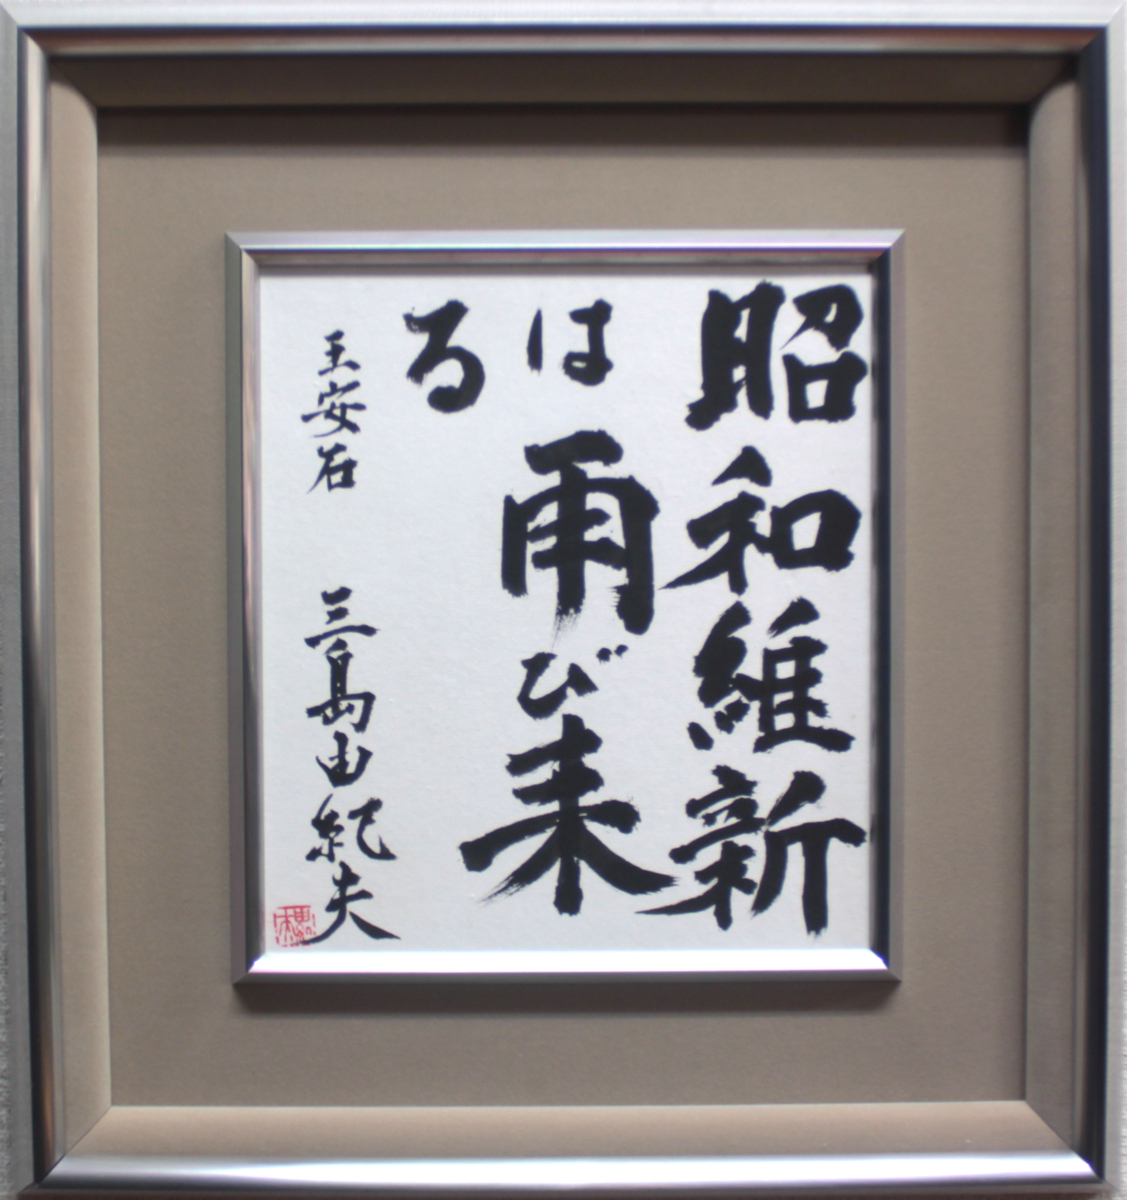 昭和維新
は再び来
る
王安石 三島由紀夫